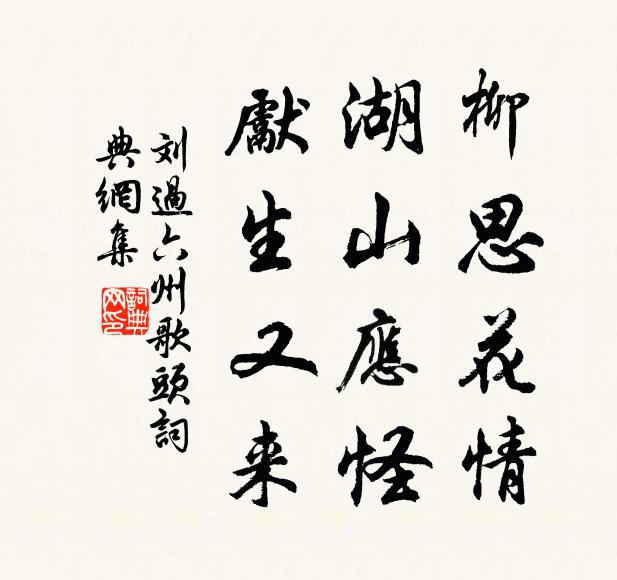 柳思花情
湖山應怪
獻生又来
刘過六州歌頭詞
典網集
詞典网印